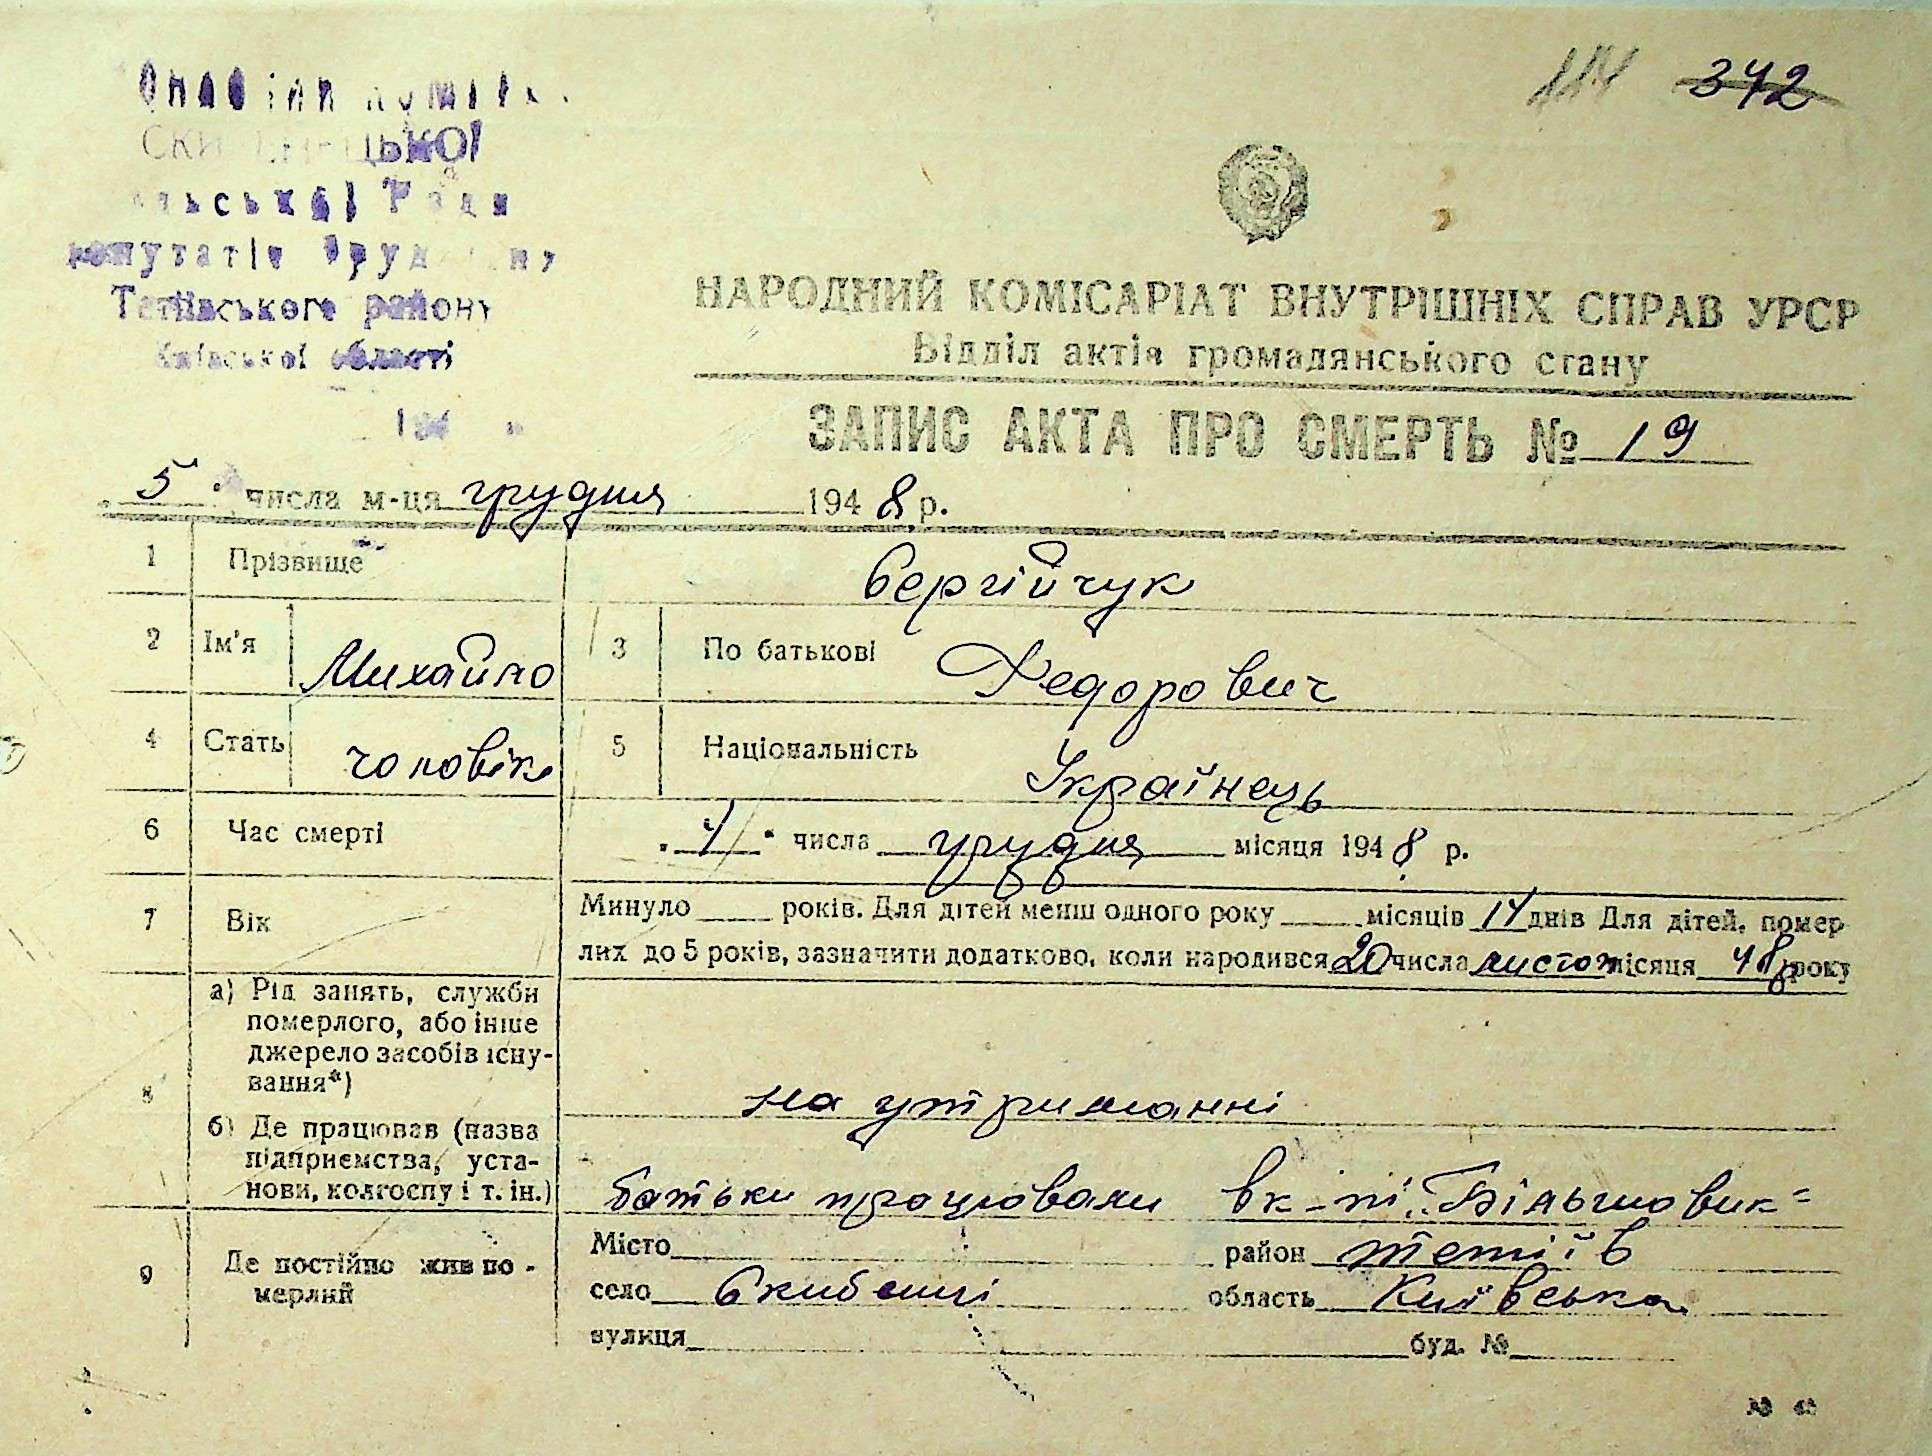 114 342
СКИБИНЕЦЬКОЇ
сільської Ради
депутатів Трудящих
Тетіївського району
Київської області
194
НАРОДНИЙ КОМІСАРІАТ ВНУТРІШНІХ СПРАВ УРСР
Відділ актів громадянського стану
ЗАПИС АКТА ПРО СМЕРТЬ № 19
„ 5 " числа м-ця грудня 194 8 р.
1 Прізвище Сергійчук
2 Ім'я Михайло 3 По батькові Федорович
4 Стать чоловік 5 Національність Українець
6 Час смерті „ 4 " числа грудня місяця 194 8 р.
7 Вік Минуло ____ років. Для дітей менш одного року ____ місяців 14 днів Для дітей, помер-
лих до 5 років, зазначити додатково, коли народився 20 числа листоп місяця 48 року
8 а) Рід занять, служби
померлого, або інше
джерело засобів існу-
вання*) на утриманні
б) Де працював (назва
підприємства, уста-
нови, колгоспу і т. ін.) батьки працювали в к-пі „Більшовик"
9 Де постійно жив по-
мерлий
Місто ____ район Тетіїв
село Скибенці область Київська
вулиця ____ буд. № ____